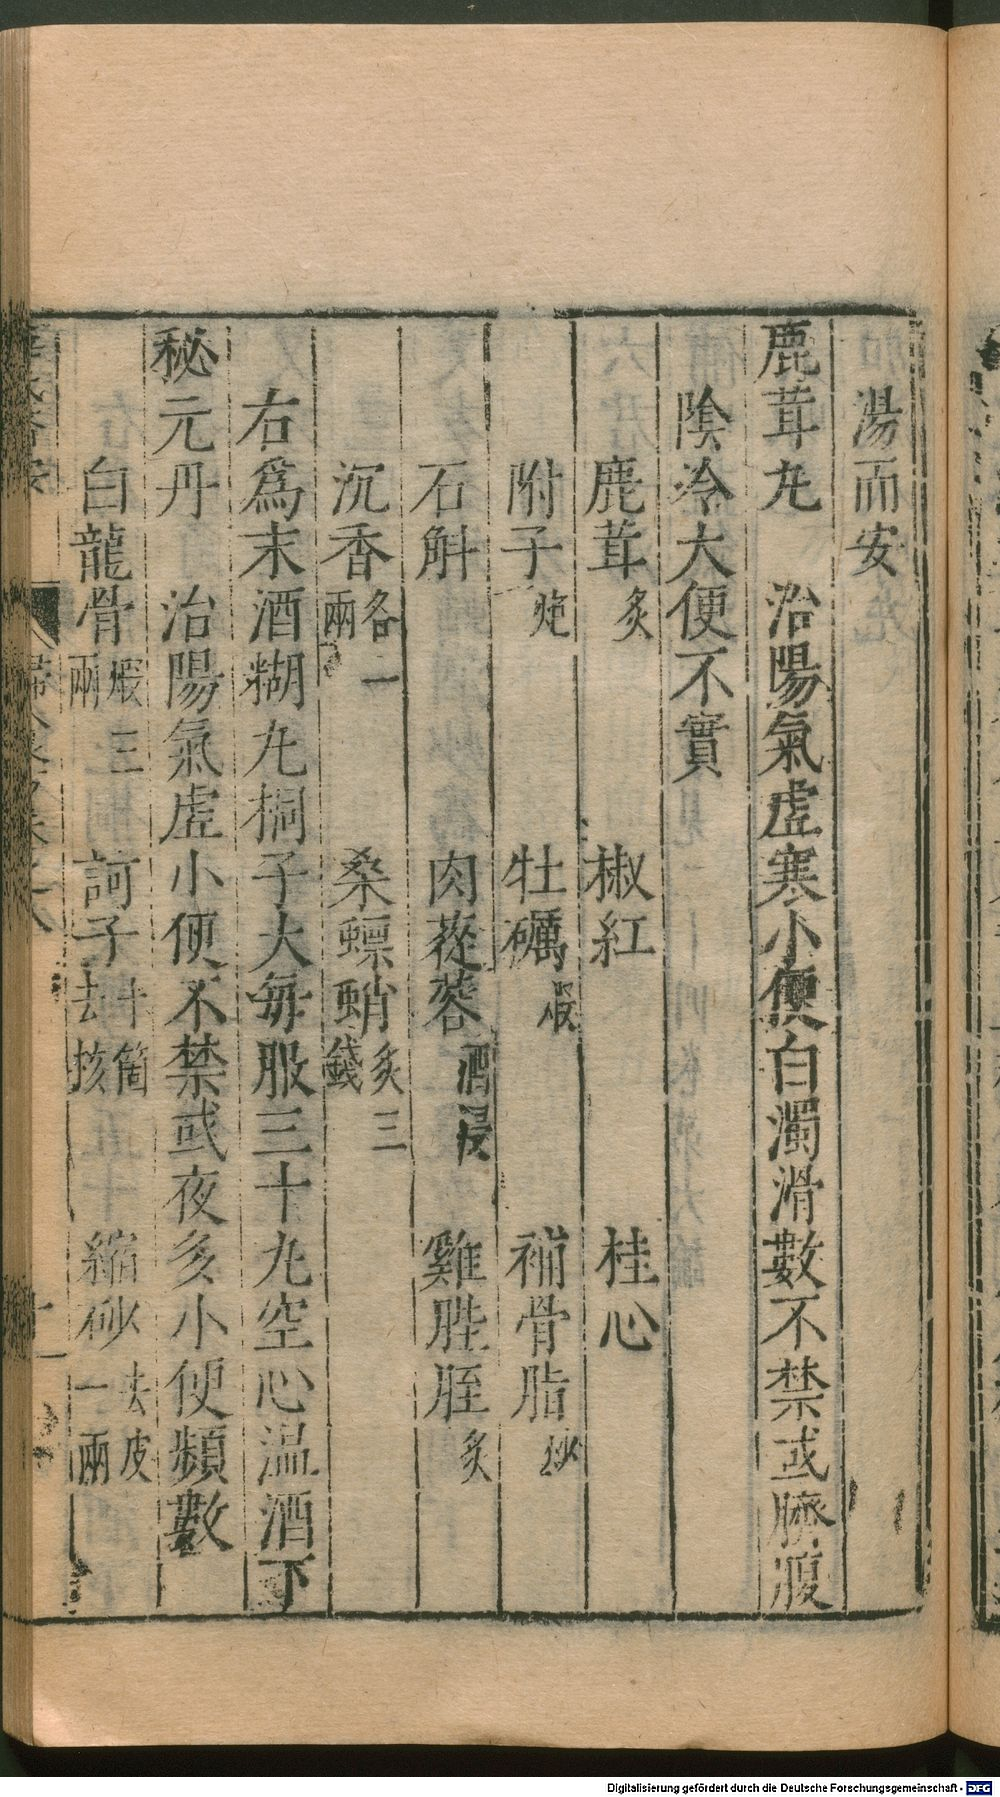 湯而安
鹿茸丸 治陽氣虛寒小便白濁滑數不禁或臍腹
陰冷大便不實
鹿茸炙 椒紅 桂心
附子炮 牡礪煆 補骨脂炒
石斛 肉蓯蓉酒浸 雞膍胵炙
沉香各一兩 桑螵蛸炙三錢
右爲末酒糊丸桐子大每服三十丸空心温酒下
秘元丹 治陽氣虛小便不禁或夜多小便頻數
白龍骨煆三兩 訶子十箇去核 縮砂去皮一兩
Digitalisierung gefördert durch die Deutsche Forschungsgemeinschaft - DFG